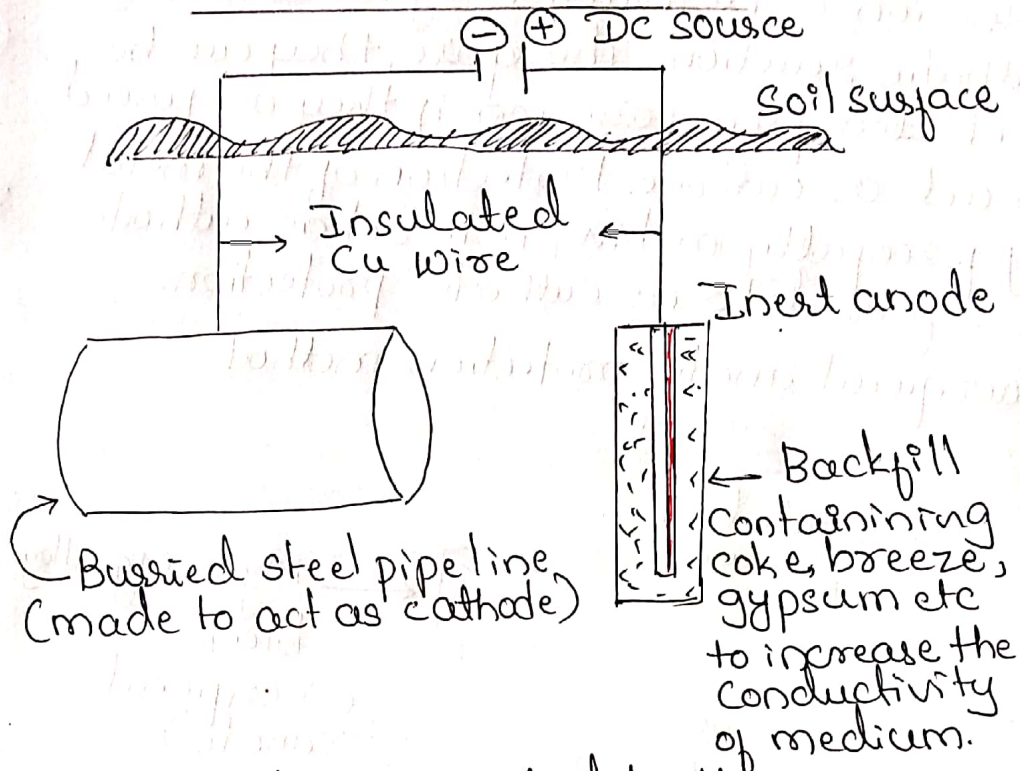 ⊖ ⊕ DC source
Soil surface
Insulated
Cu Wire
Inert anode
Backfill
Containining
coke, breeze,
gypsum etc
to increase the
conductivity
of medium.
Burried steel pipeline
(made to act as cathode)